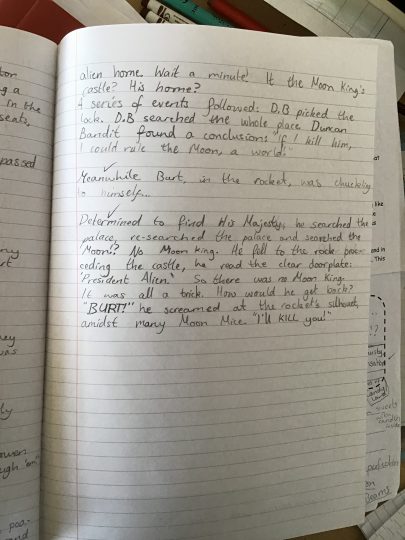 alien home. Wait a minute! It the Moon King's
castle? His home?
A series of events followed: D.B picked the
lock. D.B searched the whole place. Duncan
Bandit found a conclusion: "if I kill him,
I could rule the Moon, a world."
Meanwhile Burt, in the rocket, was chuckling
to himself...
Determined to find His Majesty, he searched the
palace, re-searched the palace and searched the
Moon!? No Moon King. He fell to the rock pre-
ceding the castle, he read the clear doorplate:
"President Alien." So there was no Moon King.
It was all a trick. How would he get back?
"BURT!" he screamed at the rocket's silhouet,
amidst many Moon Mice. "I'll KILL you!"
ing a
in the
seats,
passed
was
ough
and